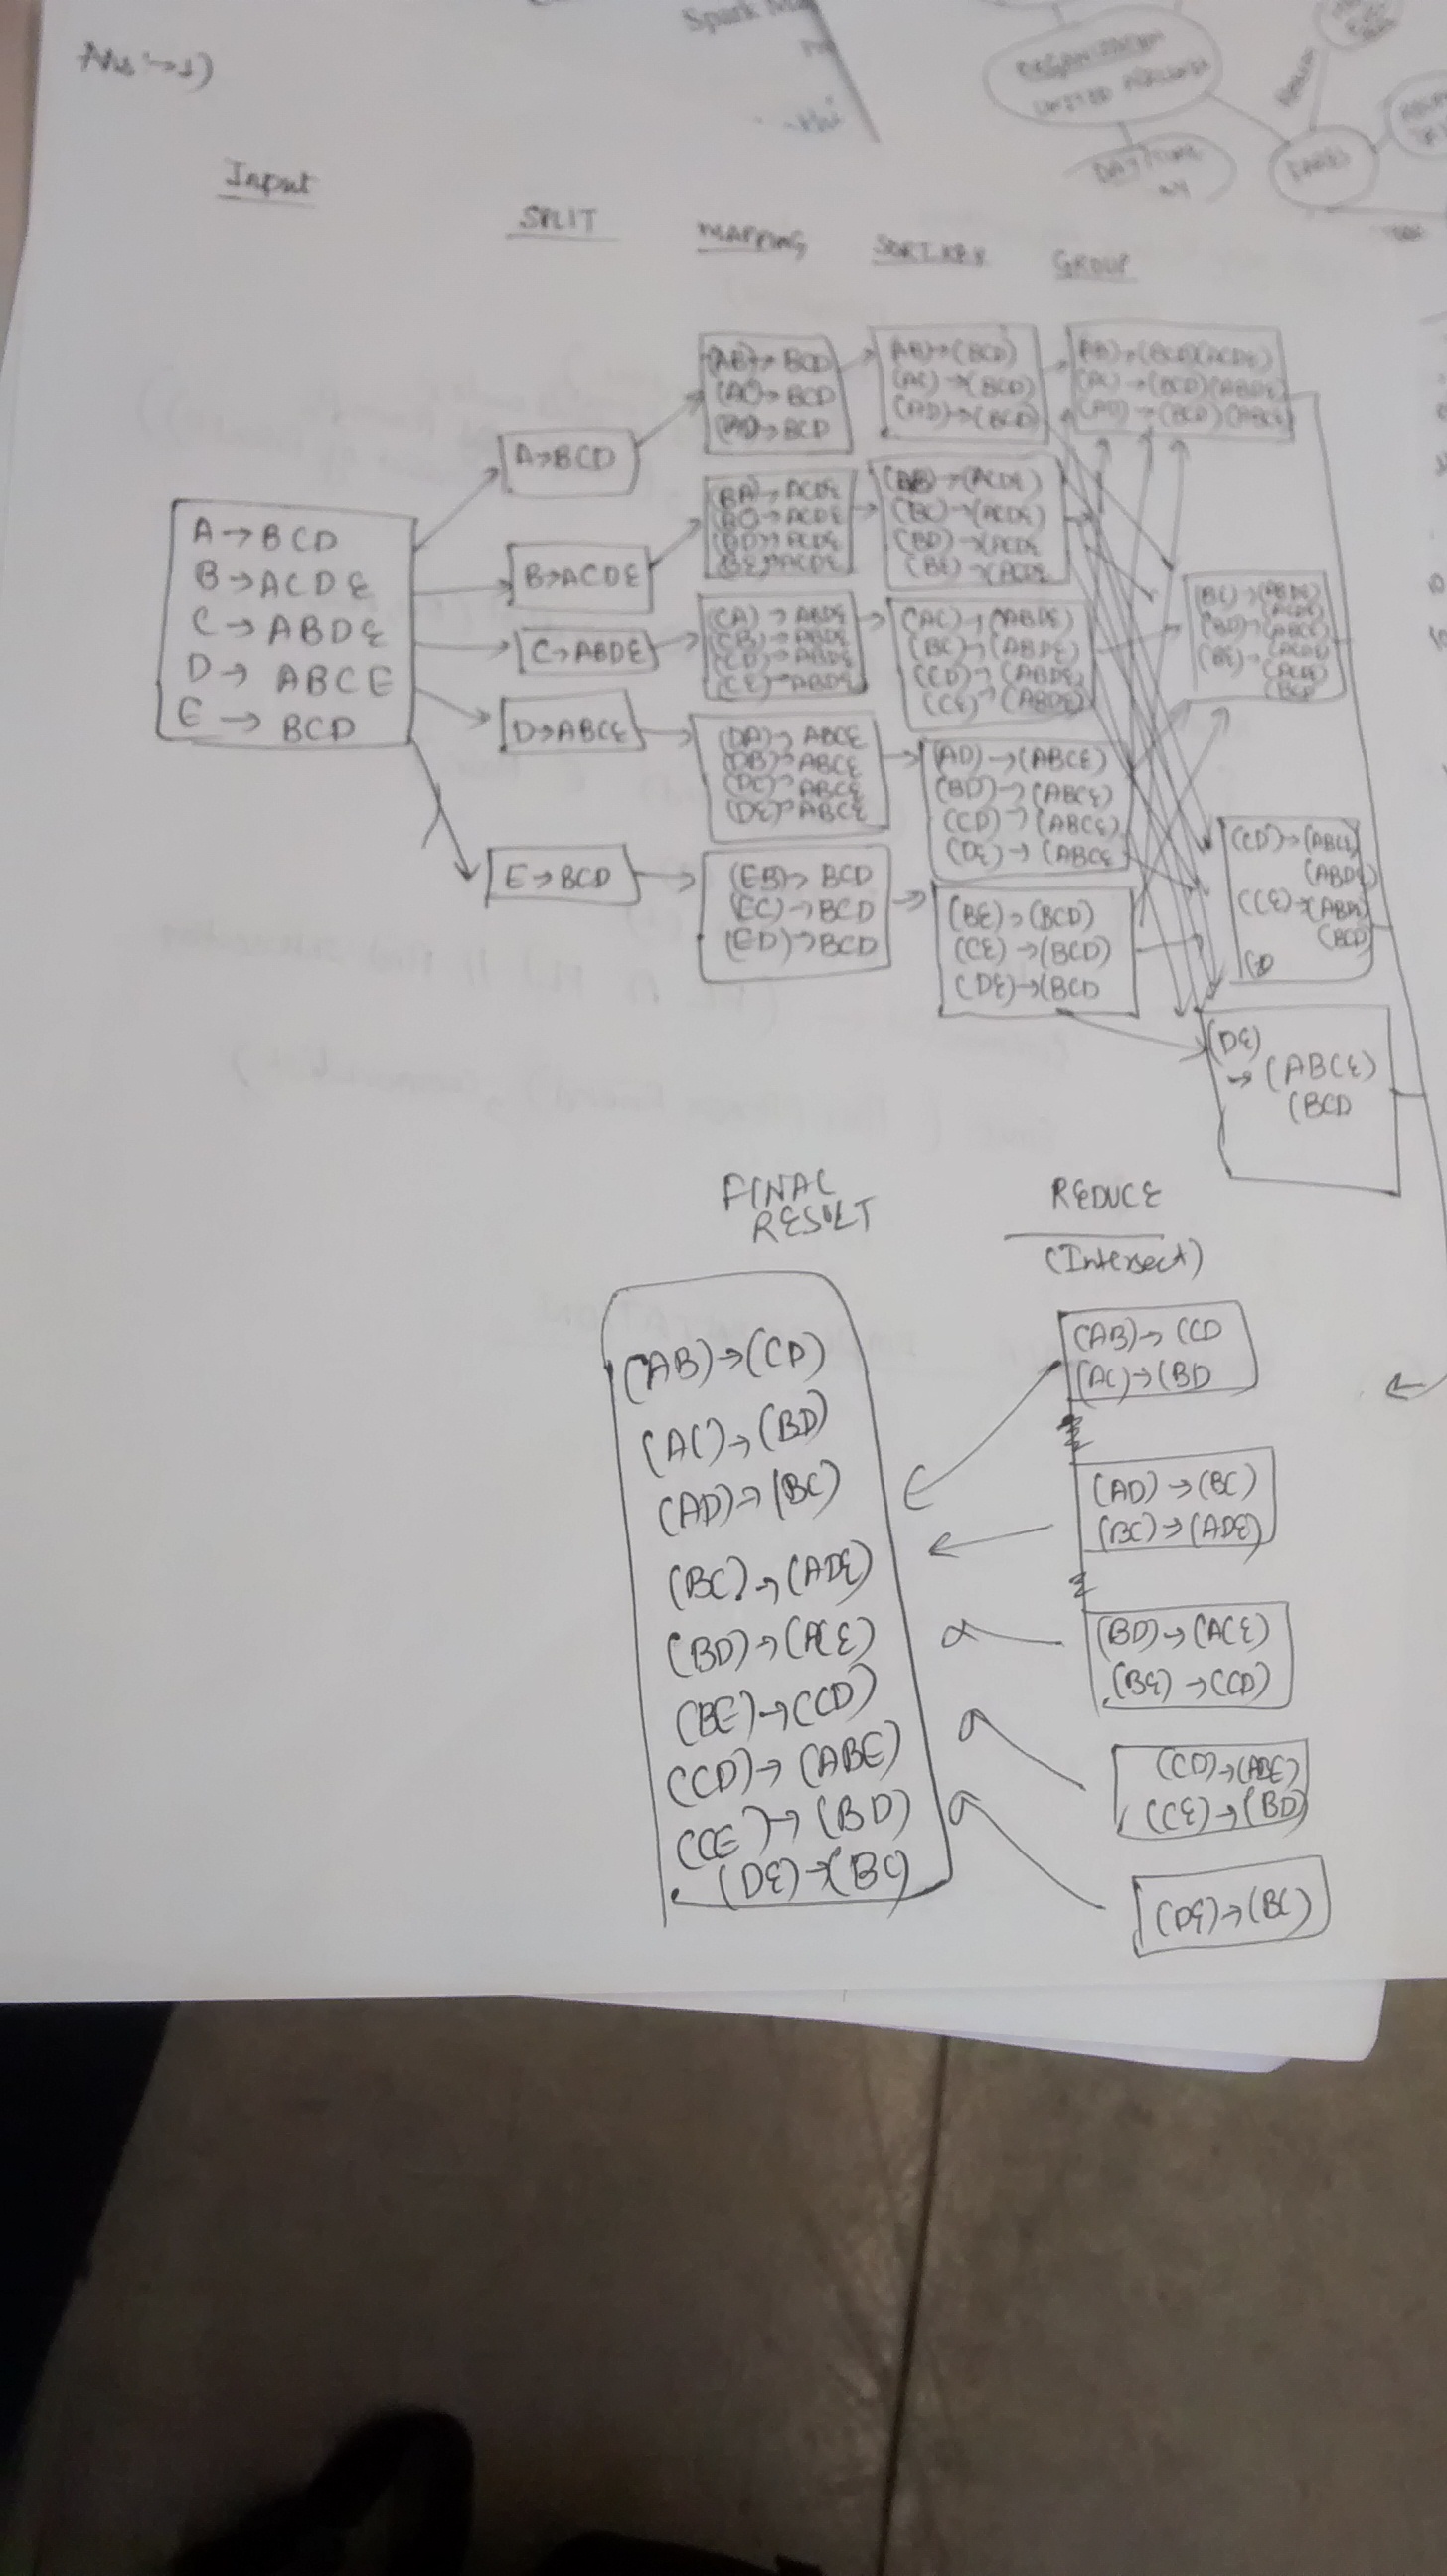 Ans:→1)
Spark Ma
ORGANIZATION
UNITED AIRLINES
DAY/TIME
FARES
Input
SPLIT
MAPPING
SORT KEY
GROUP
A→BCD
B→ACDE
C→ABDE
D→ ABCE
E → BCD
A→BCD
B→ACDE
C→ABDE
D→ABCE
E→BCD
(AB)→ BCD
(AC)→ BCD
(AD)→ BCD
(BA)→ ACDE
(BC)→ACDE
(BD)→ACDE
(BE)→ACDE
(CA)→ ABDE
(CB)→ABDE
(CD)→ABDE
(CE)→ABDE
(DA)→ ABCE
(DB)→ABCE
(DC)→ABCE
(DE)→ABCE
(EB)→ BCD
(EC)→BCD
(ED)→BCD
(AB)→(BCD)
(AC)→(BCD)
(AD)→(BCD)
(AB)→(ACDE)
(BC)→(ACDE)
(BD)→(ACDE
(BE)→(ACDE
(AC)→(ABDE)
(BC)→(ABDE)
(CD)→(ABDE)
(CE)→(ABDE)
(AD)→(ABCE)
(BD)→(ABCE)
(CD)→(ABCE)
(DE)→(ABCE
(BE)→(BCD)
(CE)→(BCD)
(DE)→(BCD
(AB)→(BCD)(ACDE)
(AC)→(BCD)(ABDE)
(AD)→(BCD)(ABCE)
(BC)→(ABDE)
(ACDE)
(BD)→(ABCE)
(ACDE)
(BE)→(ACDE)
(BCD
(CD)→(ABCE)
(ABDE)
(CE)→(ABDE)
(BCD)
(DE)
→(ABCE)
(BCD
FINAL
RESULT
(AB)→(CD)
(AC)→(BD)
(AD)→(BC)
(BC)→(ADE)
(BD)→(ACE)
(BE)→(CD)
(CD)→(ABE)
(CE)→(BD)
(DE)→(BC)
REDUCE
(Intersect)
(AB)→(CD
(AC)→(BD
(AD)→(BC)
(BC)→(ADE)
(BD)→(ACE)
(BE)→(CD)
(CD)→(ABE)
(CE)→(BD)
(DE)→(BC)